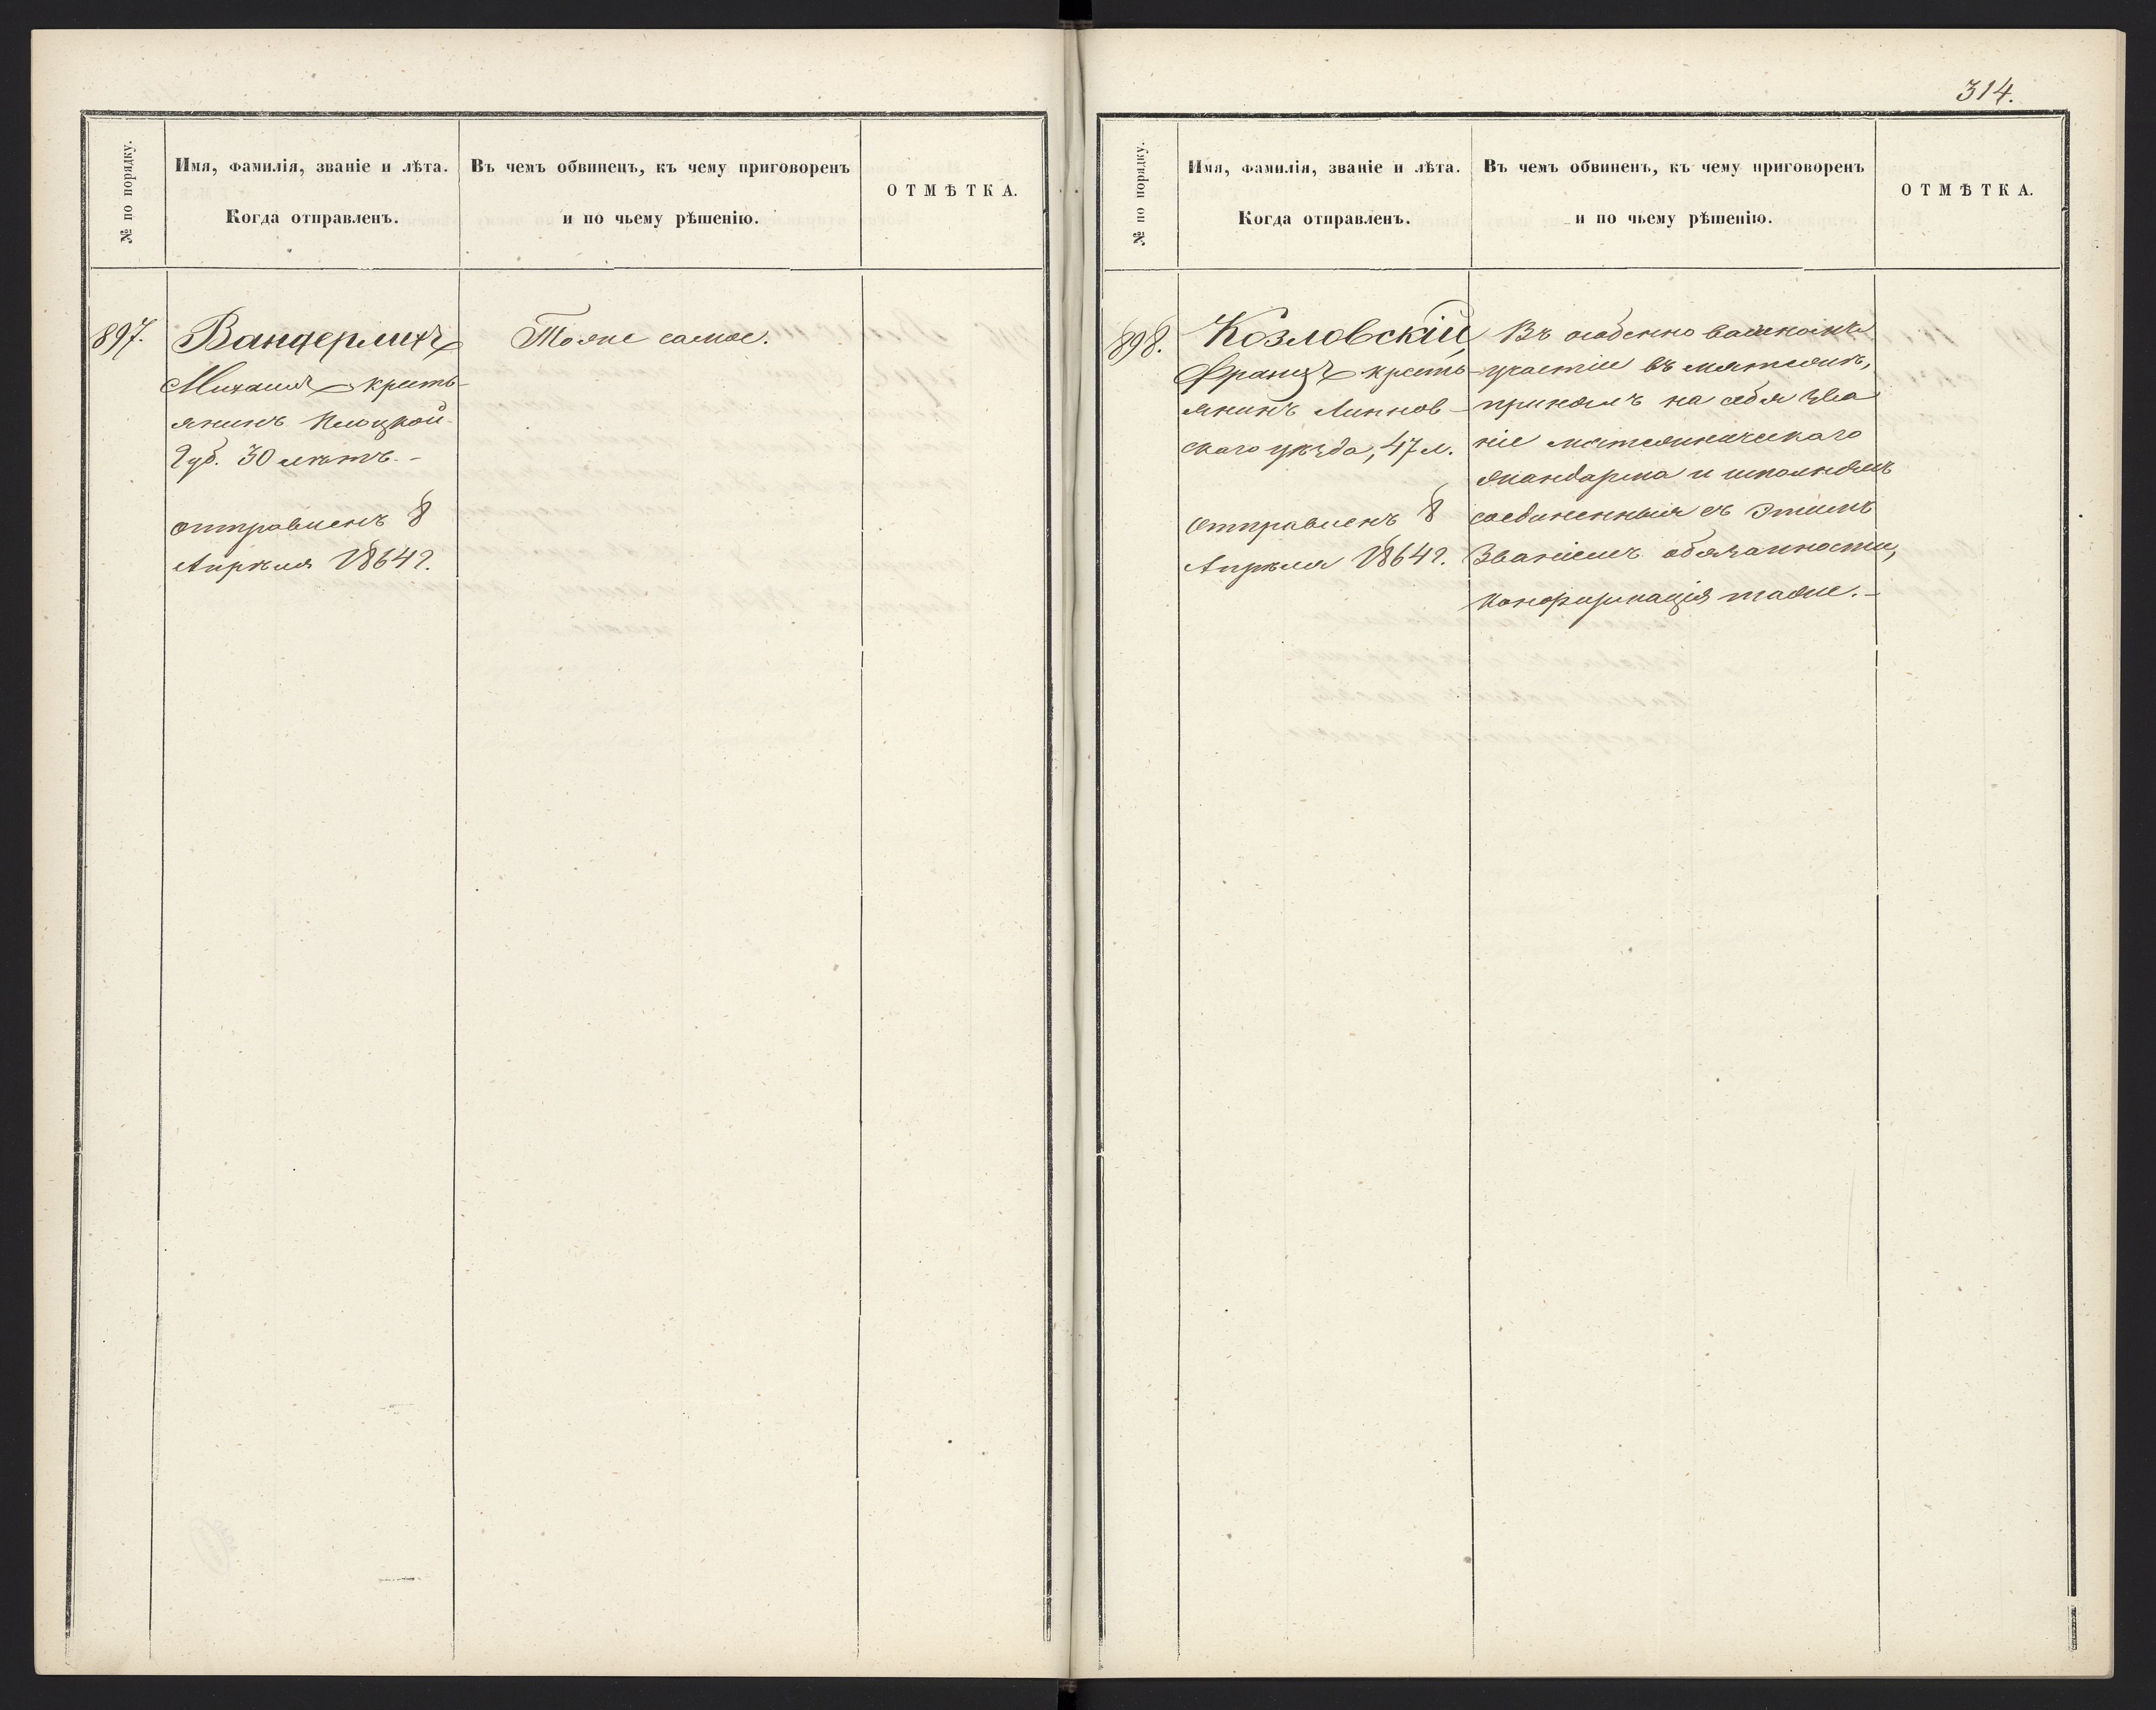 № по порядку.
Имя, фамилія, званіе и лѣта.
Когда отправленъ.
Въ чемъ обвиненъ, къ чему приговоренъ
и по чьему рѣшенію.
ОТМѢТКА.
897.
Вандерлихъ
Михаилъ крестья-
янинъ Плоцкой
Губ. 30 лѣтъ. -
отправленъ 8
Апрѣля 1864 г.
Тоже самое.
314.
№ по порядку.
Имя, фамилія, званіе и лѣта.
Когда отправленъ.
Въ чемъ обвиненъ, къ чему приговоренъ
и по чьему рѣшенію.
ОТМѢТКА.
898.
Козловскій
Францъ кресть-
янинъ Липнов-
скаго уѣзда, 47 л.
отправленъ 8
Апрѣля 1864 г.
Въ особенно важномъ
участіи въ мятежѣ,
принялъ на себя зва
ніе мятежническаго
жандарма и исполнялъ
соединенныя съ этимъ
званіемъ обязанности,
конфирмація таже. -